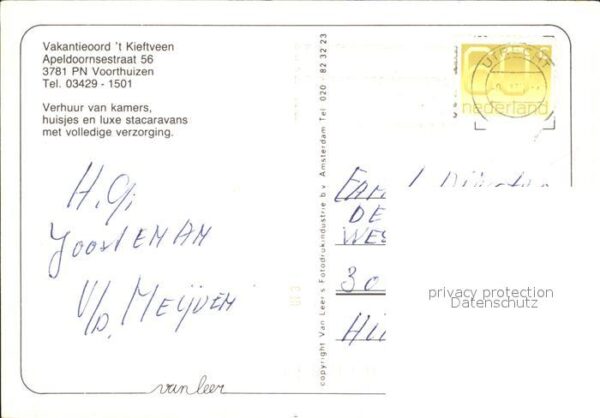 Vakantieoord 't Kieftveen
Apeldoornsestraat 56
3781 PN Voorthuizen
Tel. 03429 - 1501
Verhuur van kamers,
huisjes en luxe stacaravans
met volledige verzorging.
H. Gr
JoosteMAN
V/D. Meijden
van leer
copyright Van Leer's Fotodrukindustrie b.v. Amsterdam Tel 020 - 82 32 23
UTRECHT
nederland
FAM
DE
WES
30
Hi
privacy protection
Datenschutz